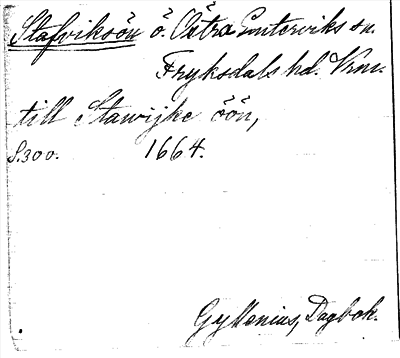 Stafviksön ö. Östra Emterviks sn.
Fryksdals hd. Vrm.
till Stawijke öön,
S.300. 1664.
Gyllenius, Dagbok.